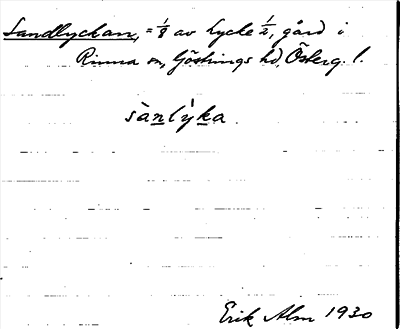 Sandlyckan, = 1/8 av Lycke 1/2, gård i
Rinna sn, Göstrings hd, Österg. l.
sànlýka
Erik Alm 1930